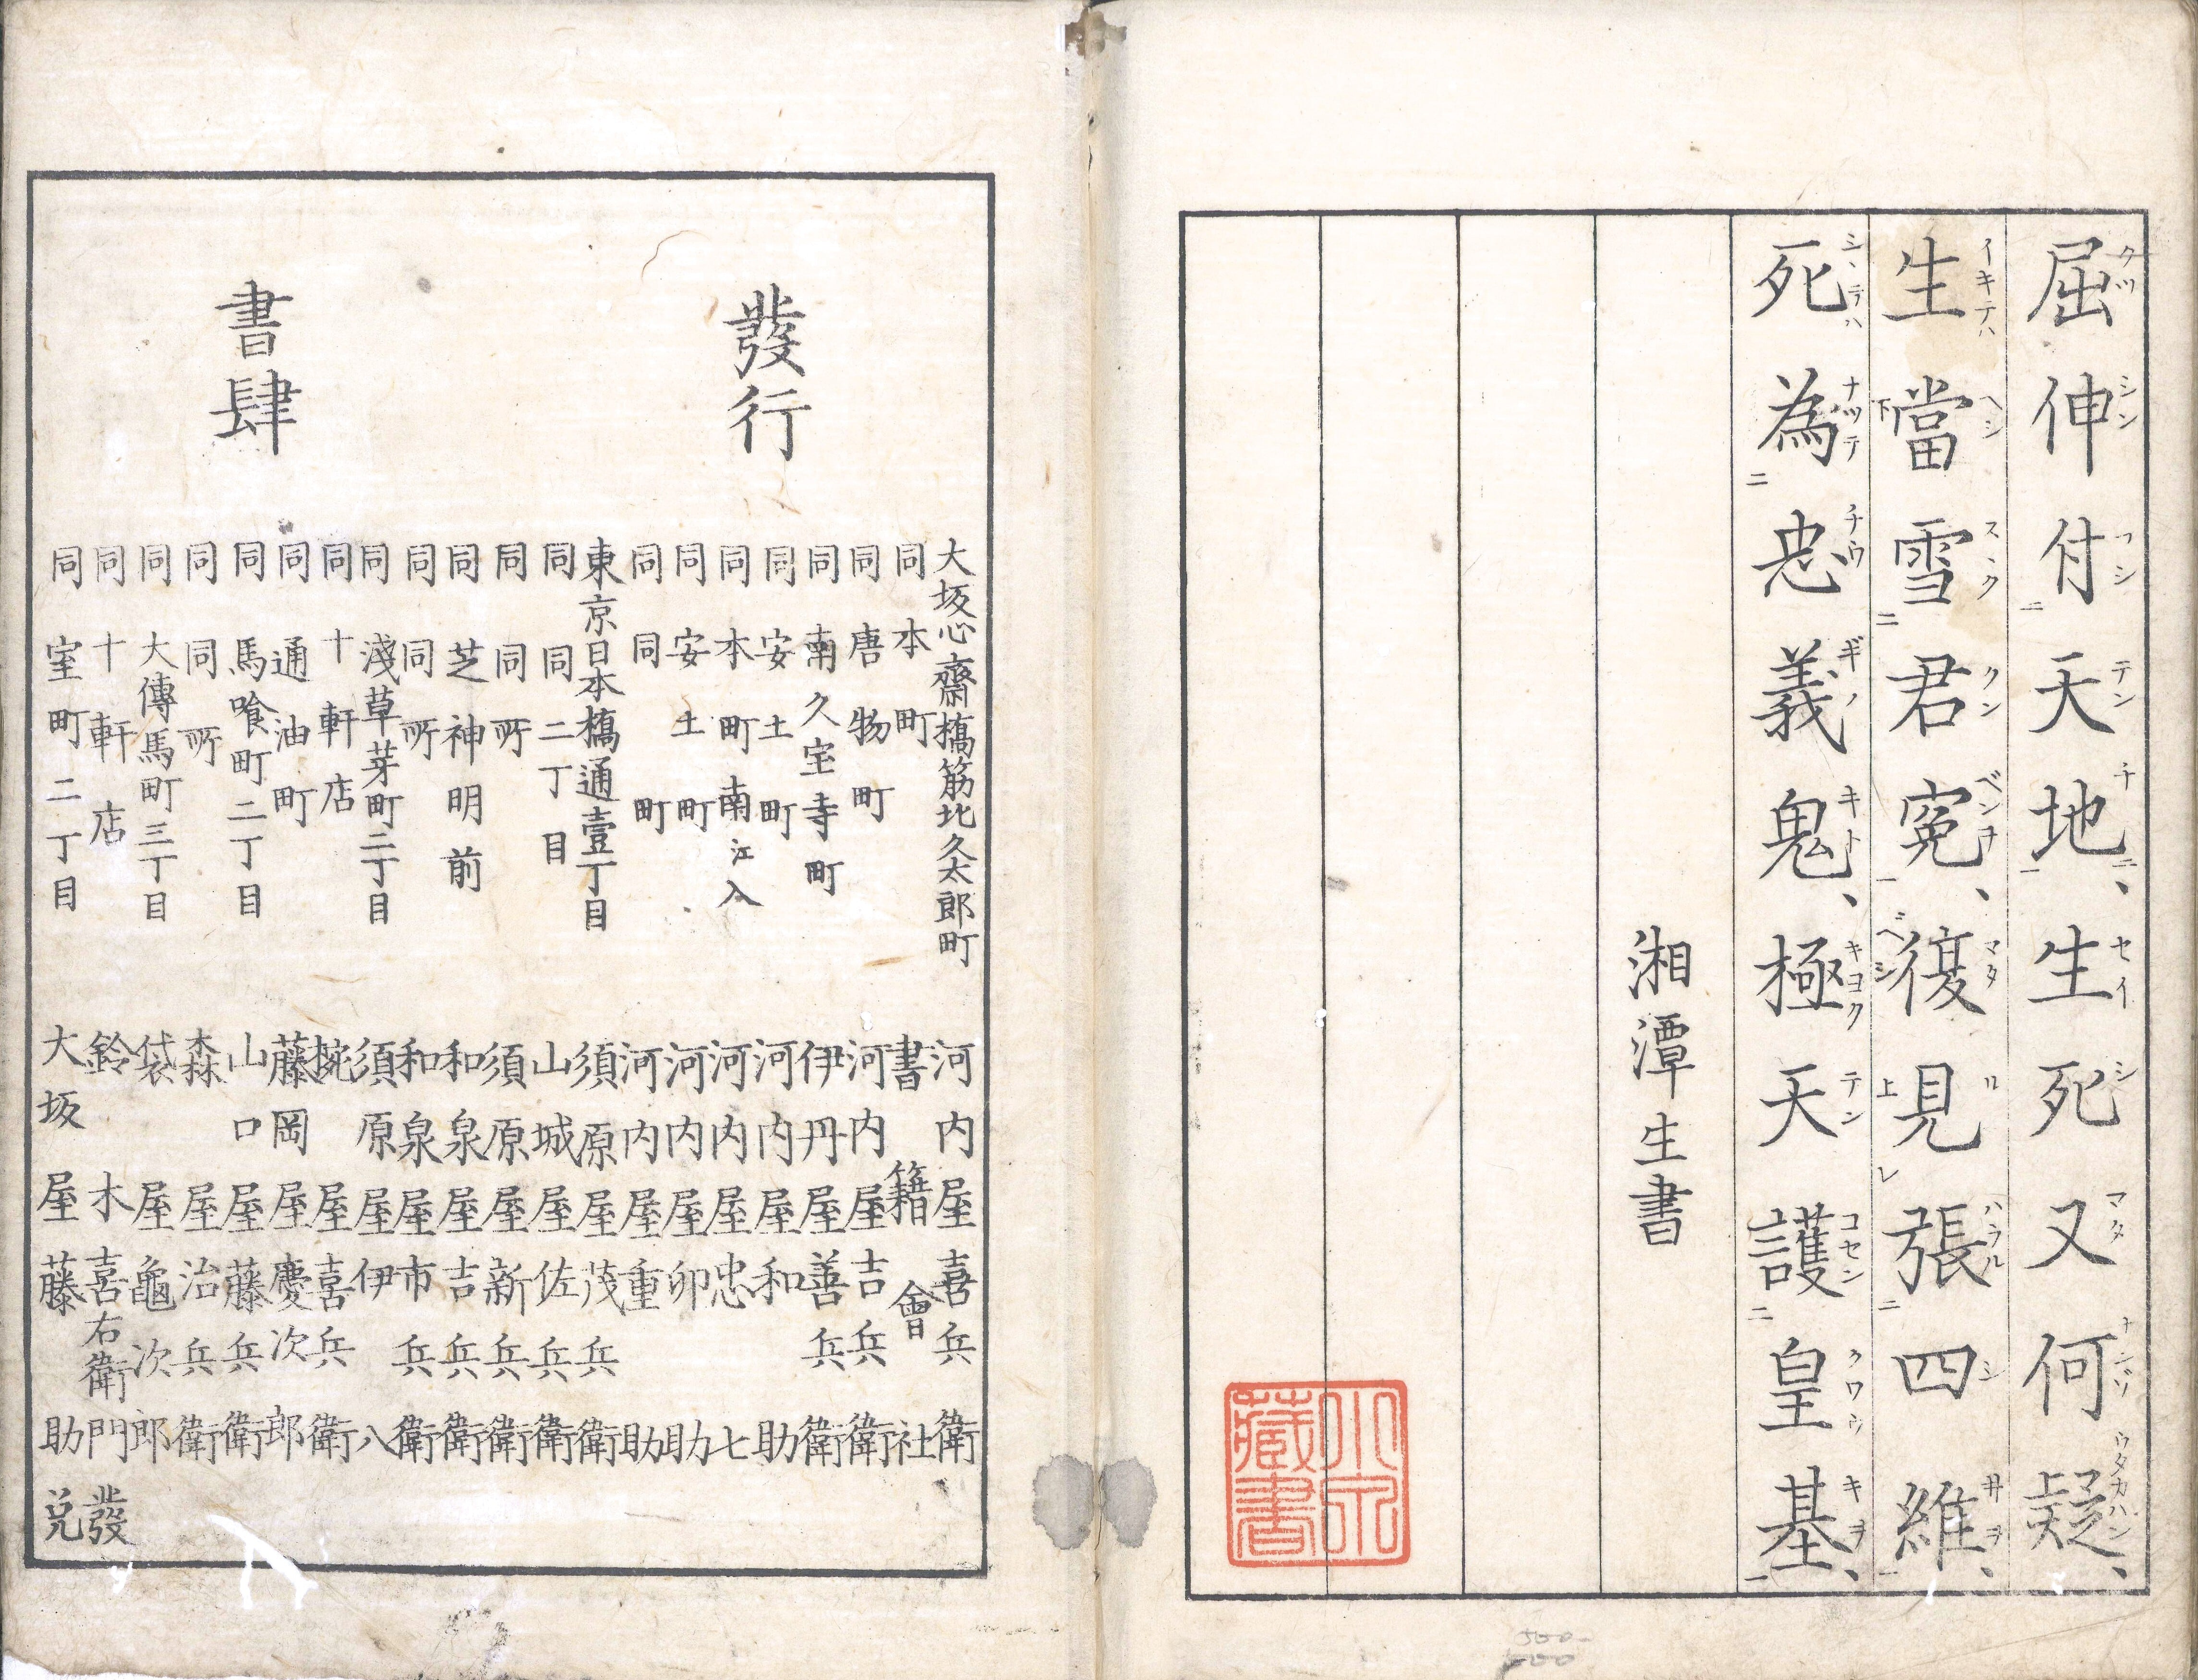 屈伸付天地、生死又何疑、
生當雪君冤、復見張四維、
死為忠義鬼、極天護皇基、
湘潭生書
藏書
發行
書肆
大坂心齋橋筋北久太郎町 河内屋喜兵衛
同本町 書籍會社
同唐物町 河内屋吉兵衛
同南久宝寺町 伊丹屋善兵衛
同安土町 河内屋和助
同本町南江入 河内屋忠七
同安土町 河内屋卯助
同同町 河内屋重助
東京日本橋通壹丁目 須原屋茂兵衛
同同二丁目 山城屋佐兵衛
同同所 須原屋新兵衛
同芝神明前 和泉屋吉兵衛
同同所 和泉屋市兵衛
同淺草茅町二丁目 須原屋伊八
同十軒店 椀屋喜兵衛
同通油町 藤岡屋慶次郎
同馬喰町二丁目 山口屋藤兵衛
同同所 森屋治兵衛
同大傳馬町三丁目 袋屋龜次郎
同十軒店 鈴木喜右衛門 發
同室町二丁目 大坂屋藤助 兌